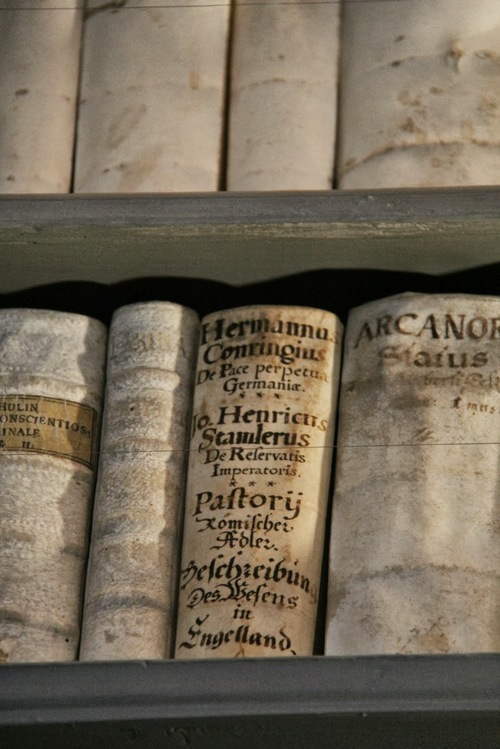 HULIN
ONSCIENTIOS
INALE
II.
Hermannu
Conringius
De Pace perpetua
Germaniæ.
* * *
Jo. Henricus
Stamlerus
De Reservatis
Imperatoris.
* * *
Pastorij
Römischer
Adler.
Beschreibun
Des Wesens
in
Engelland.
ARCANOR
Status